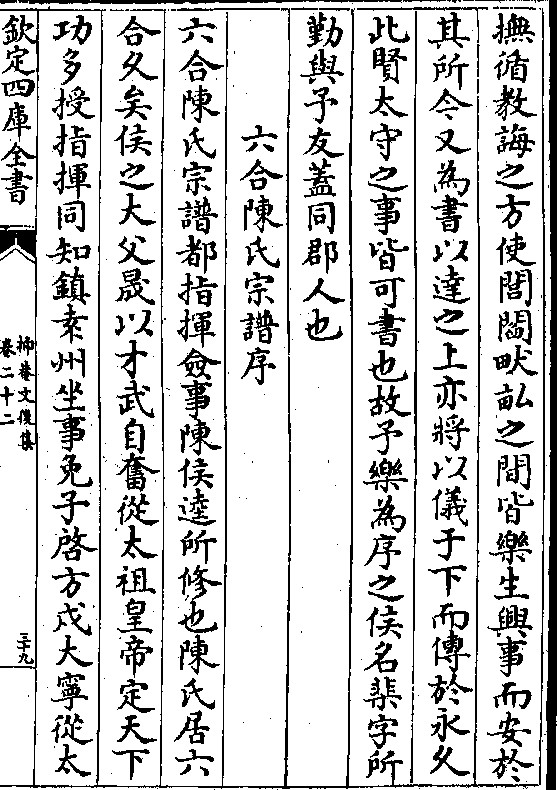 撫循教誨之方使閭閻畎畝之間皆樂生興事而安於
其所今又為書以達之上亦將以儀于下而傳於永久
此賢太守之事皆可書也故予樂為序之侯名棐字所
勤與予友蓋同郡人也
六合陳氏宗譜序
六合陳氏宗譜都指揮僉事陳侯逵所修也陳氏居六
合久矣侯之大父晟以才武自奮從太祖皇帝定天下
功多授指揮同知鎮泰州坐事免子啓方戍大寧從太
欽定四庫全書
抑菴文後集
卷二十二
三十九